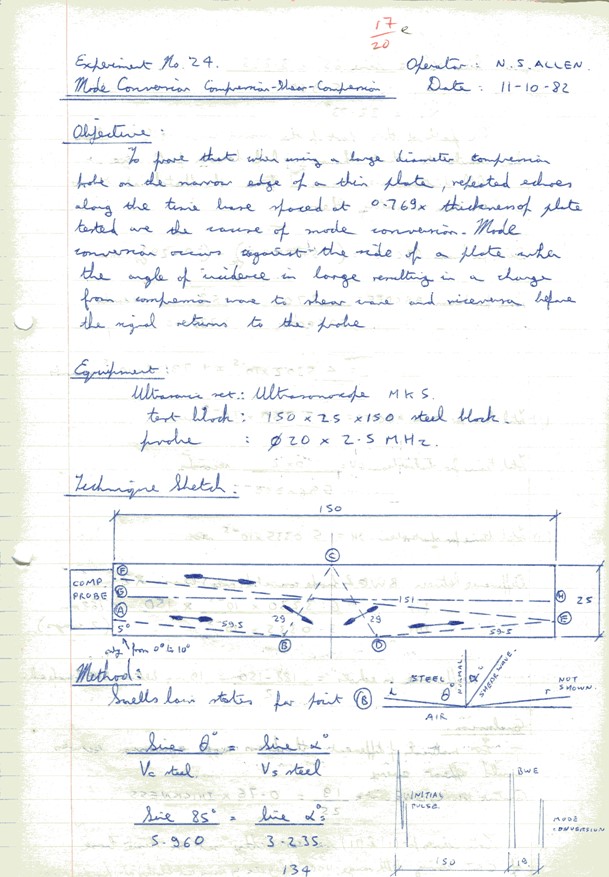 17
20
Experiment No. 24.
Operator : N.S. ALLEN.
Mode Conversion Compression-Shear-Compression
Date : 11-10-82
Objective :
To prove that when using a large diameter compression
probe on the narrow edge of a thin plate, repeated echoes
along the time base spaced at 0.769 x thickness of plate
tested are the cause of mode conversion. Mode
conversion occurs against the side of a plate when
the angle of incidence is large resulting in a change
from compression wave to shear wave and viceversa before
the signal returns to the probe
Equipment :
Ultrasonic set : Ultrasonoscope MK5.
test block : 150 x 25 x 150 steel block.
probe : Ø 20 x 2.5 MHz.
Technique Sketch :
150
C
COMP.
PROBE
F
G
A
5°
59.5
29
B
151
29
D
59.5
H
E
25
from 0° to 10°
Method :
Snells law states for point B
STEEL
NORMAL
θ°
α°
SHEAR WAVE.
NOT
SHOWN.
AIR
Sine θ° = Sine α°
Vc steel. Vs steel
Sine 85° = Sine α°
5.960 3.235
INITIAL
PULSE.
BWE
MODE
CONVERSION
150
19
134